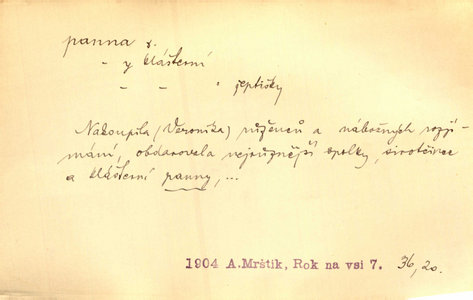 panna ž.
- y klášterní
- - - jeptišky
Nakoupila (Veronika) růženců a nábožných rozjí-
mání, obdarovala nejrůznější spolky, sirotčince
a klášterní panny, ...
1904 A.Mrštík, Rok na vsi 7. 36, 20.